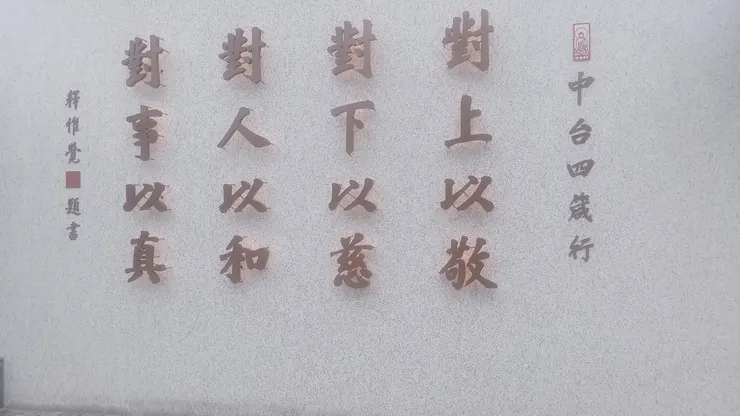 中台四箴行
對上以敬
對下以慈
對人以和
對事以真
釋惟覺題書